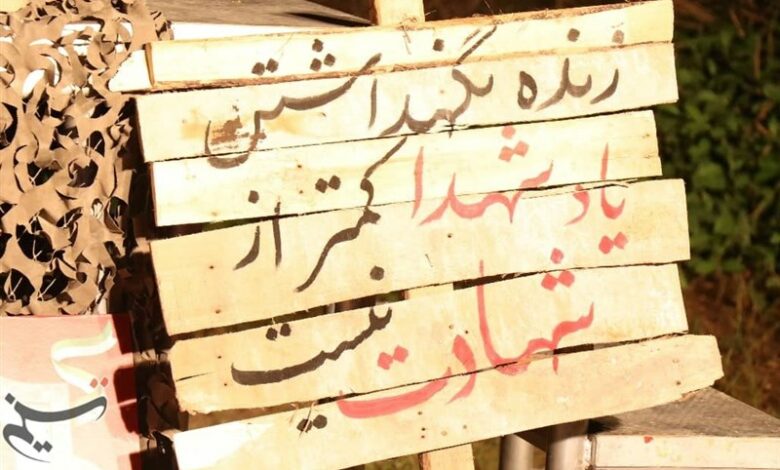 زنده نگهداشتن
یاد شهدا کمتر از
شهادت نیست
تسنیم